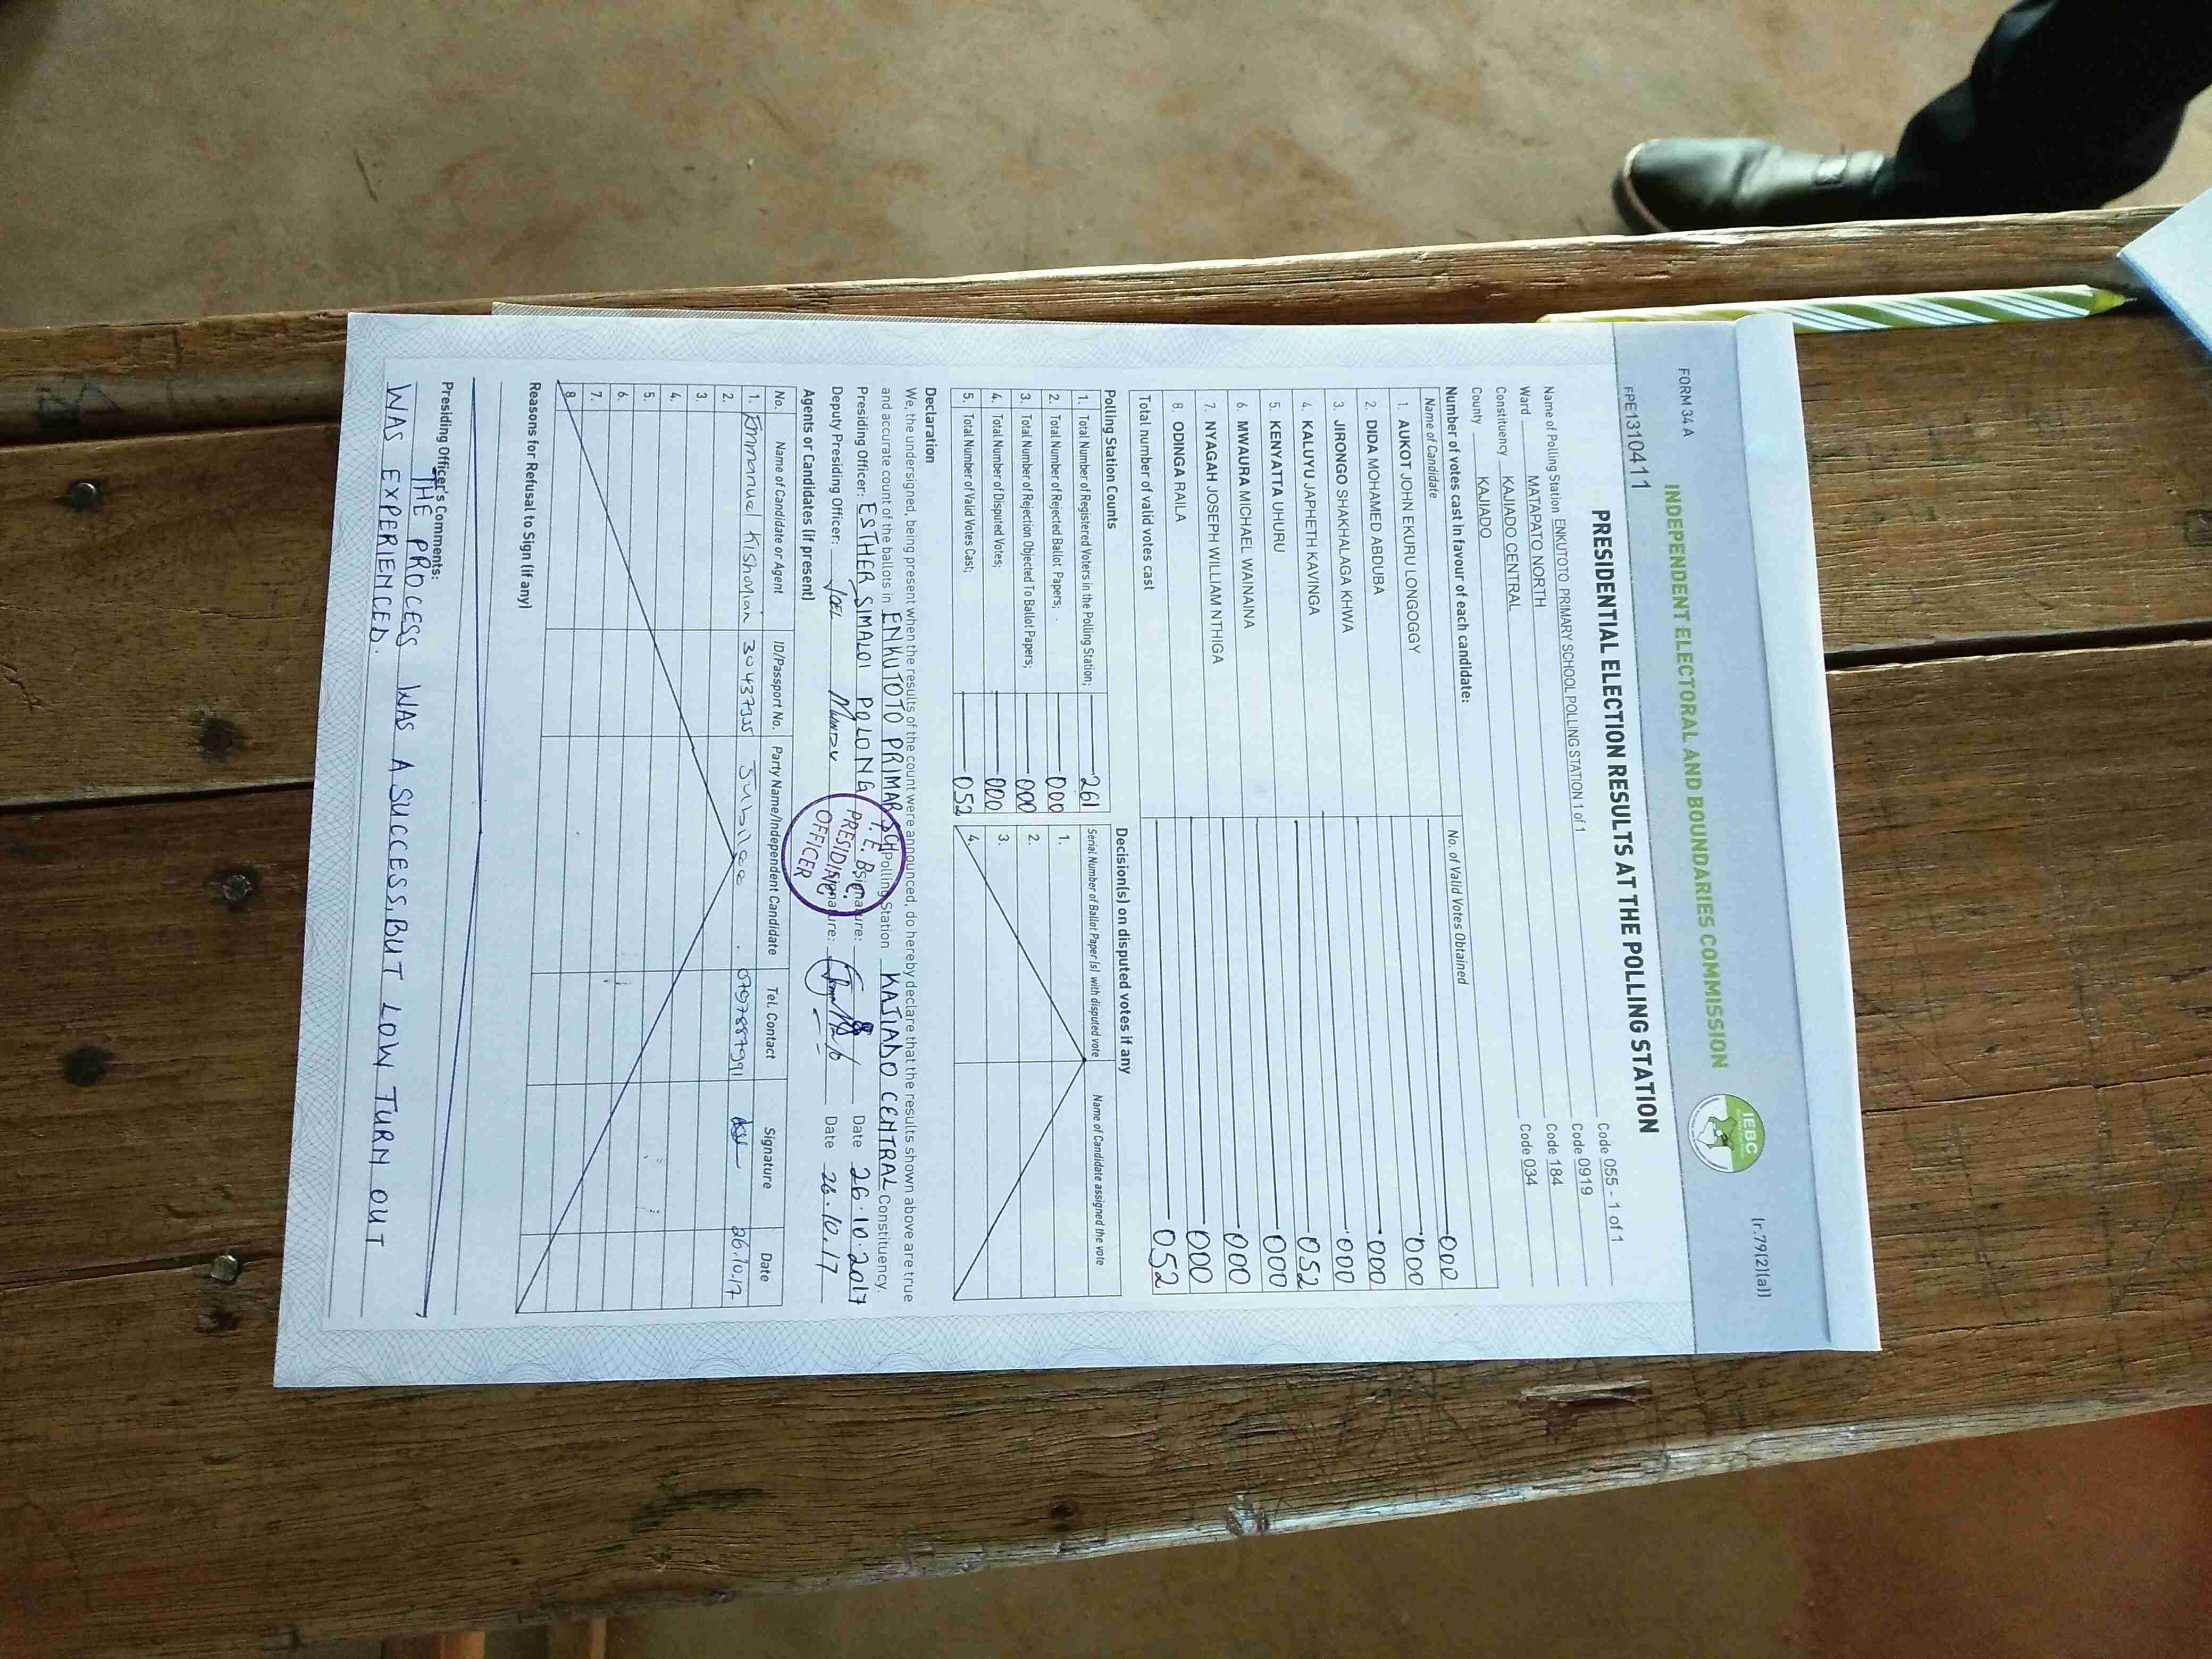 FORM 34 A
(r.79(2)(a))
INDEPENDENT ELECTORAL AND BOUNDARIES COMMISSION
IEBC
FPE1310411
PRESIDENTIAL ELECTION RESULTS AT THE POLLING STATION
Name of Polling Station ENKUTOTO PRIMARY SCHOOL POLLING STATION 1 of 1 Code 055 - 1 of 1
Ward MATAPATO NORTH Code 0919
Constituency KAJIADO CENTRAL Code 184
County KAJIADO Code 034
Number of votes cast in favour of each candidate:
Name of Candidate No. of Valid Votes Obtained
1. AUKOT JOHN EKURU LONGOGGY 000
2. DIDA MOHAMED ABDUBA 000
3. JIRONGO SHAKHALAGA KHWA 000
4. KALUYU JAPHETH KAVINGA 000
5. KENYATTA UHURU 052
6. MWAURA MICHAEL WAINAINA 000
7. NYAGAH JOSEPH WILLIAM NTHIGA 000
8. ODINGA RAILA 000
Total number of valid votes cast 052
Polling Station Counts
1. Total Number of Registered Voters in the Polling Station; 261
2. Total Number of Rejected Ballot Papers; 000
3. Total Number of Rejection Objected To Ballot Papers; 000
4. Total Number of Disputed Votes; 000
5. Total Number of Valid Votes Cast; 052
Decision(s) on disputed votes if any
Serial Number of Ballot Paper(s) with disputed vote Name of Candidate assigned the vote
1.
2.
3.
4.
Declaration
We, the undersigned, being present when the results of the count were announced, do hereby declare that the results shown above are true
and accurate count of the ballots in ENKUTOTO PRIMARY SCH Polling Station KAJIADO CENTRAL Constituency.
Presiding Officer: ESTHER SIMALOI POLONG Signature: Date 26.10.2017
Deputy Presiding Officer: JOEL Signature: Date 26.10.17
I.E.B.C.
PRESIDING
OFFICER
Agents or Candidates (if present)
No. Name of Candidate or Agent ID/Passport No. Party Name/Independent Candidate Tel. Contact Signature Date
1. Emmanuel Kishoyian 30437355 Jubilee 0797887991 26.10.17
2.
3.
4.
5.
6.
7.
8.
Reasons for Refusal to Sign (if any)
Presiding Officer's Comments:
THE PROCESS WAS A SUCCESS, BUT LOW TURN OUT
WAS EXPERIENCED.